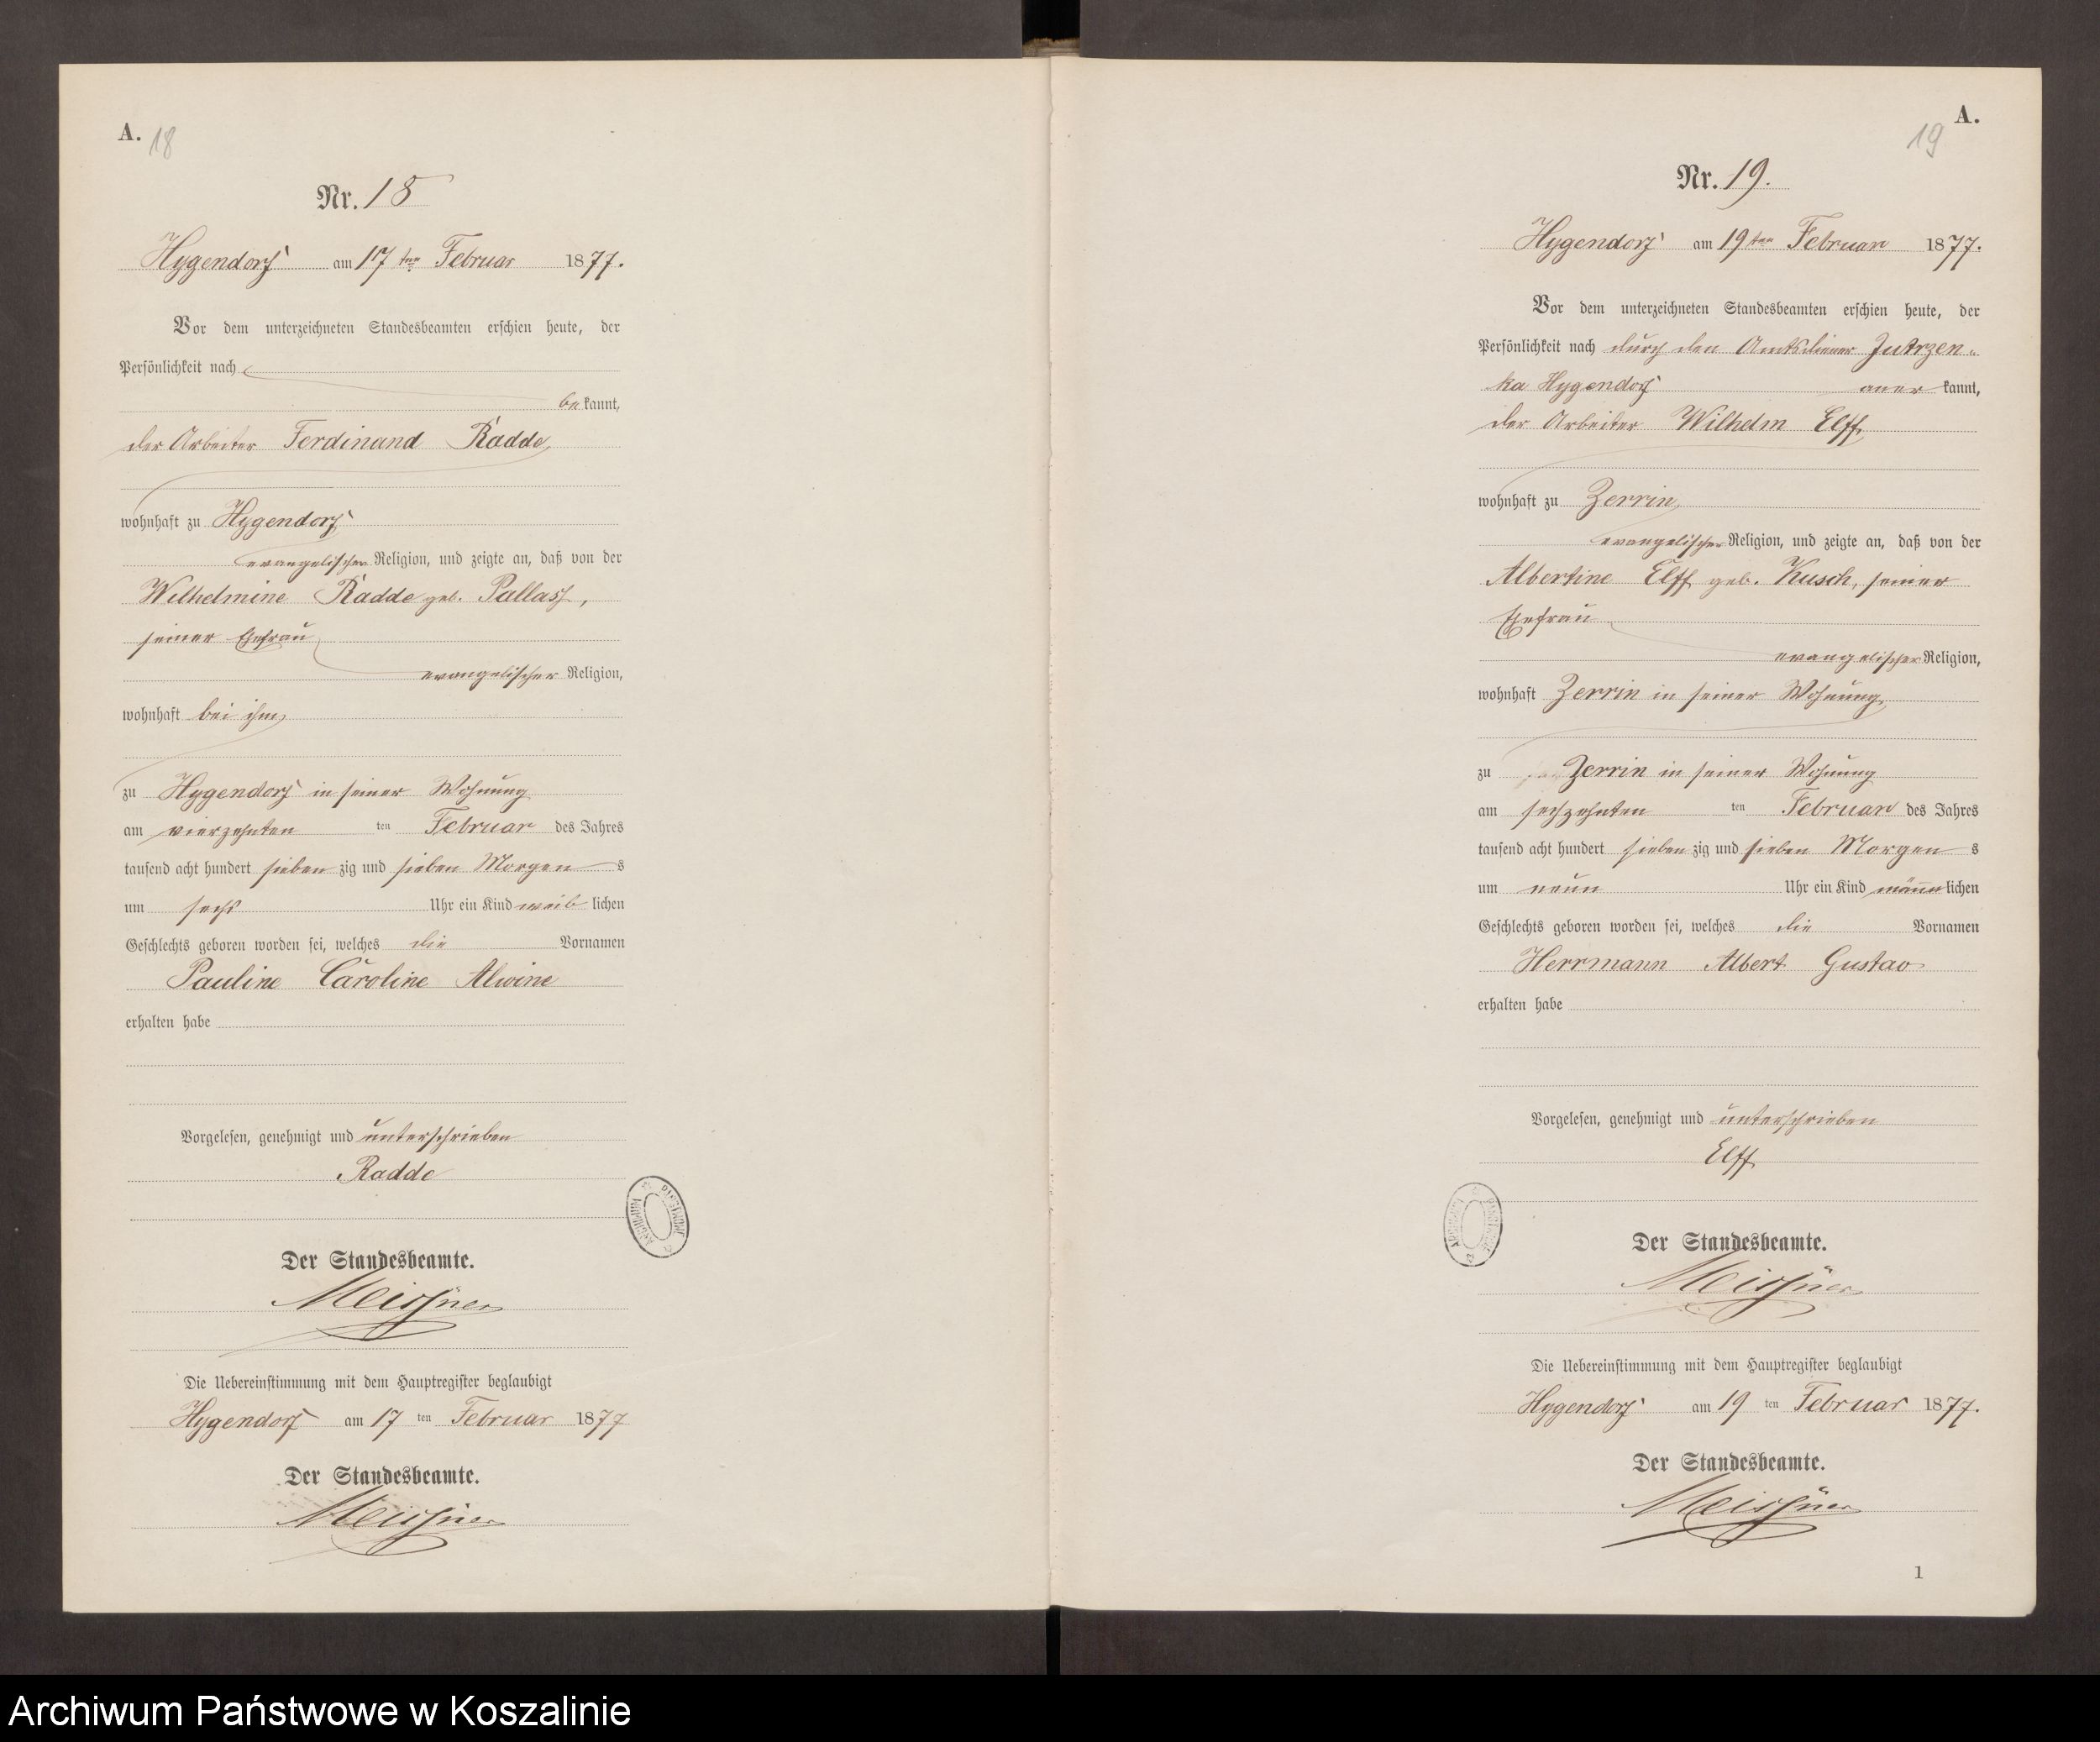 A.
18
Nr. 18
Hygendorf am 17ten Februar 1877.
Vor dem unterzeichneten Standesbeamten erschien heute, der
Persönlichkeit nach
bekannt,
der Arbeiter Ferdinand Radde,
wohnhaft zu Hygendorf
evangelischer Religion, und zeigte an, daß von der
Wilhelmine Radde geb. Pallasch,
seiner Ehefrau
evangelischer Religion,
wohnhaft bei ihm,
zu Hygendorf in seiner Wohnung
am vierzehnten ten Februar des Jahres
tausend acht hundert siebenzig und sieben Morgens
um sechs Uhr ein Kind weiblichen
Geschlechts geboren worden sei, welches die Vornamen
Pauline Caroline Alwine
erhalten habe
Vorgelesen, genehmigt und unterschrieben
Radde
Der Standesbeamte.
Meissner
Die Uebereinstimmung mit dem Hauptregister beglaubigt
Hygendorf am 17ten Februar 1877
Der Standesbeamte.
Meissner
A.
19
Nr. 19.
Hygendorf am 19ten Februar 1877.
Vor dem unterzeichneten Standesbeamten erschien heute, der
Persönlichkeit nach durch den Amtsdiener Jutrzen-
ka Hygendorf anerkannt,
der Arbeiter Wilhelm Elff,
wohnhaft zu Zerrin,
evangelischer Religion, und zeigte an, daß von der
Albertine Elff geb. Kusch, seiner
Ehefrau
evangelischer Religion,
wohnhaft Zerrin in seiner Wohnung,
zu Zerrin in seiner Wohnung
am sechzehnten ten Februar des Jahres
tausend acht hundert siebenzig und sieben Morgens
um neun Uhr ein Kind männlichen
Geschlechts geboren worden sei, welches die Vornamen
Herrmann Albert Gustav
erhalten habe
Vorgelesen, genehmigt und unterschrieben
Elff
Der Standesbeamte.
Meissner
Die Uebereinstimmung mit dem Hauptregister beglaubigt
Hygendorf am 19ten Februar 1877.
Der Standesbeamte.
Meissner
1
Archiwum Państwowe w Koszalinie